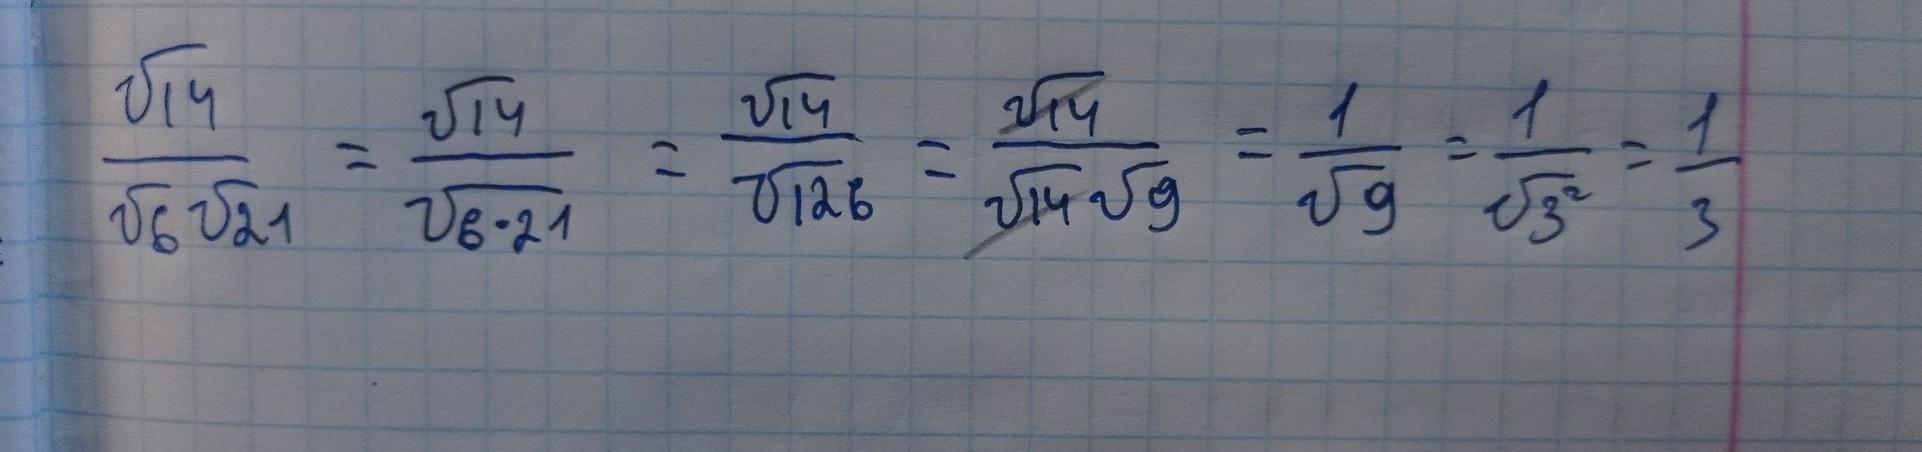 √14/(√6 √21) = √14/√(6·21) = √14/√126 = √14/(√14 √9) = 1/√9 = 1/√3² = 1/3